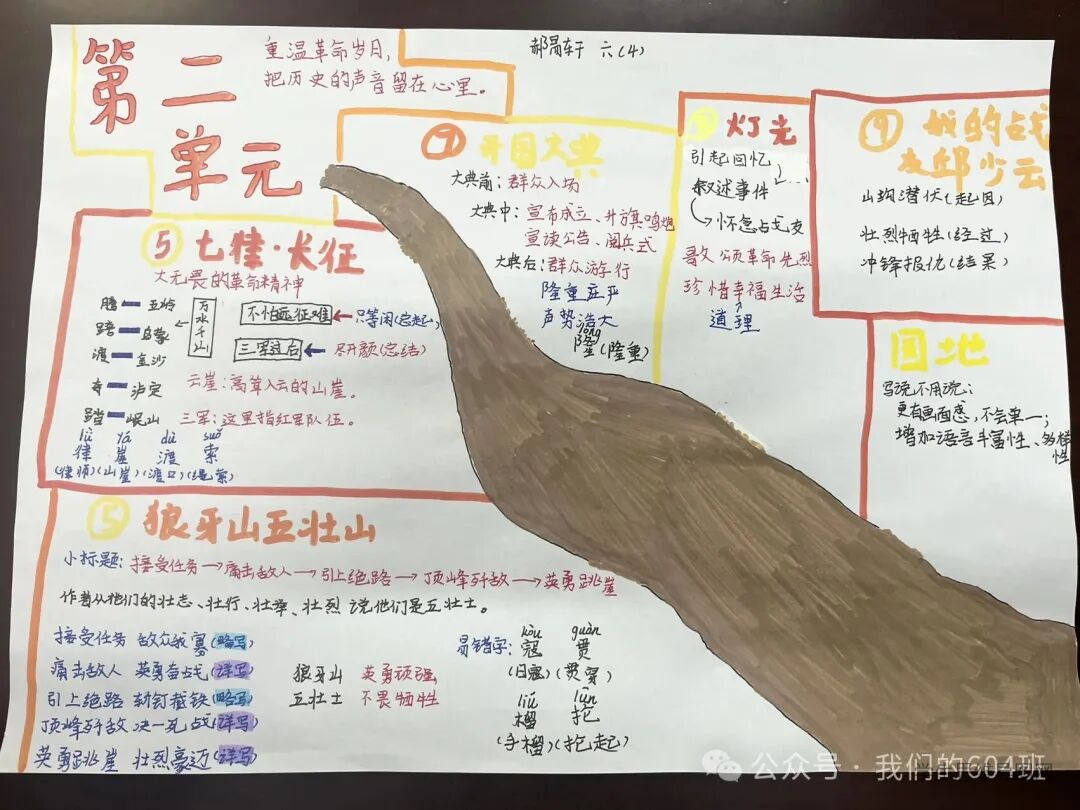 第二
单元
重温革命岁月,
把历史的声音留在心里。
六(4)
⑤ 七律·长征
大无畏的革命精神
腾 五岭
跨 乌蒙
渡 金沙
寺 泸定
踏 岷山
万水千山
不怕远征难
只等闲(总起)
三军过后
尽开颜(总结)
云崖:高耸入云的山崖。
三军:这里指红军队伍。
lǜ yá dù suǒ
律 崖 渡 索
(律师)(山崖)(渡口)(绳索)
⑤ 狼牙山五壮山
小标题:接受任务→痛击敌人→引上绝路→顶峰歼敌→英勇跳崖
作者从他们的壮志、壮行、壮举、壮烈 说他们是五壮士。
接受任务 敌众我寡(略写)
痛击敌人 英勇奋战(详写)
引上绝路 斩钉截铁(略写)
顶峰歼敌 决一死战(详写)
英勇跳崖 壮烈豪迈(详写)
狼牙山 英勇顽强
五壮士 不畏牺牲
易错字:
kòu guàn
寇 贯
(日寇)(贯穿)
liú lūn
榴 抡
(手榴)(抡起)
⑦ 开国大典
大典前:群众入场
大典中:宣布成立、升旗鸣炮
宣读公告、阅兵式
大典后:群众游行
隆重庄严
声势浩大
lóng
隆(隆重)
灯光
引起回忆
叙述事件
怀念战友
歌颂革命先烈
珍惜幸福生活
道理
⑨ 我的战
友邱少云
山沟潜伏(起因)
壮烈牺牲(经过)
冲锋报仇(结果)
园地
写说不用说:
更有画面感,不会单一;
增加语言丰富性、多样
性
公众号·我们的604班